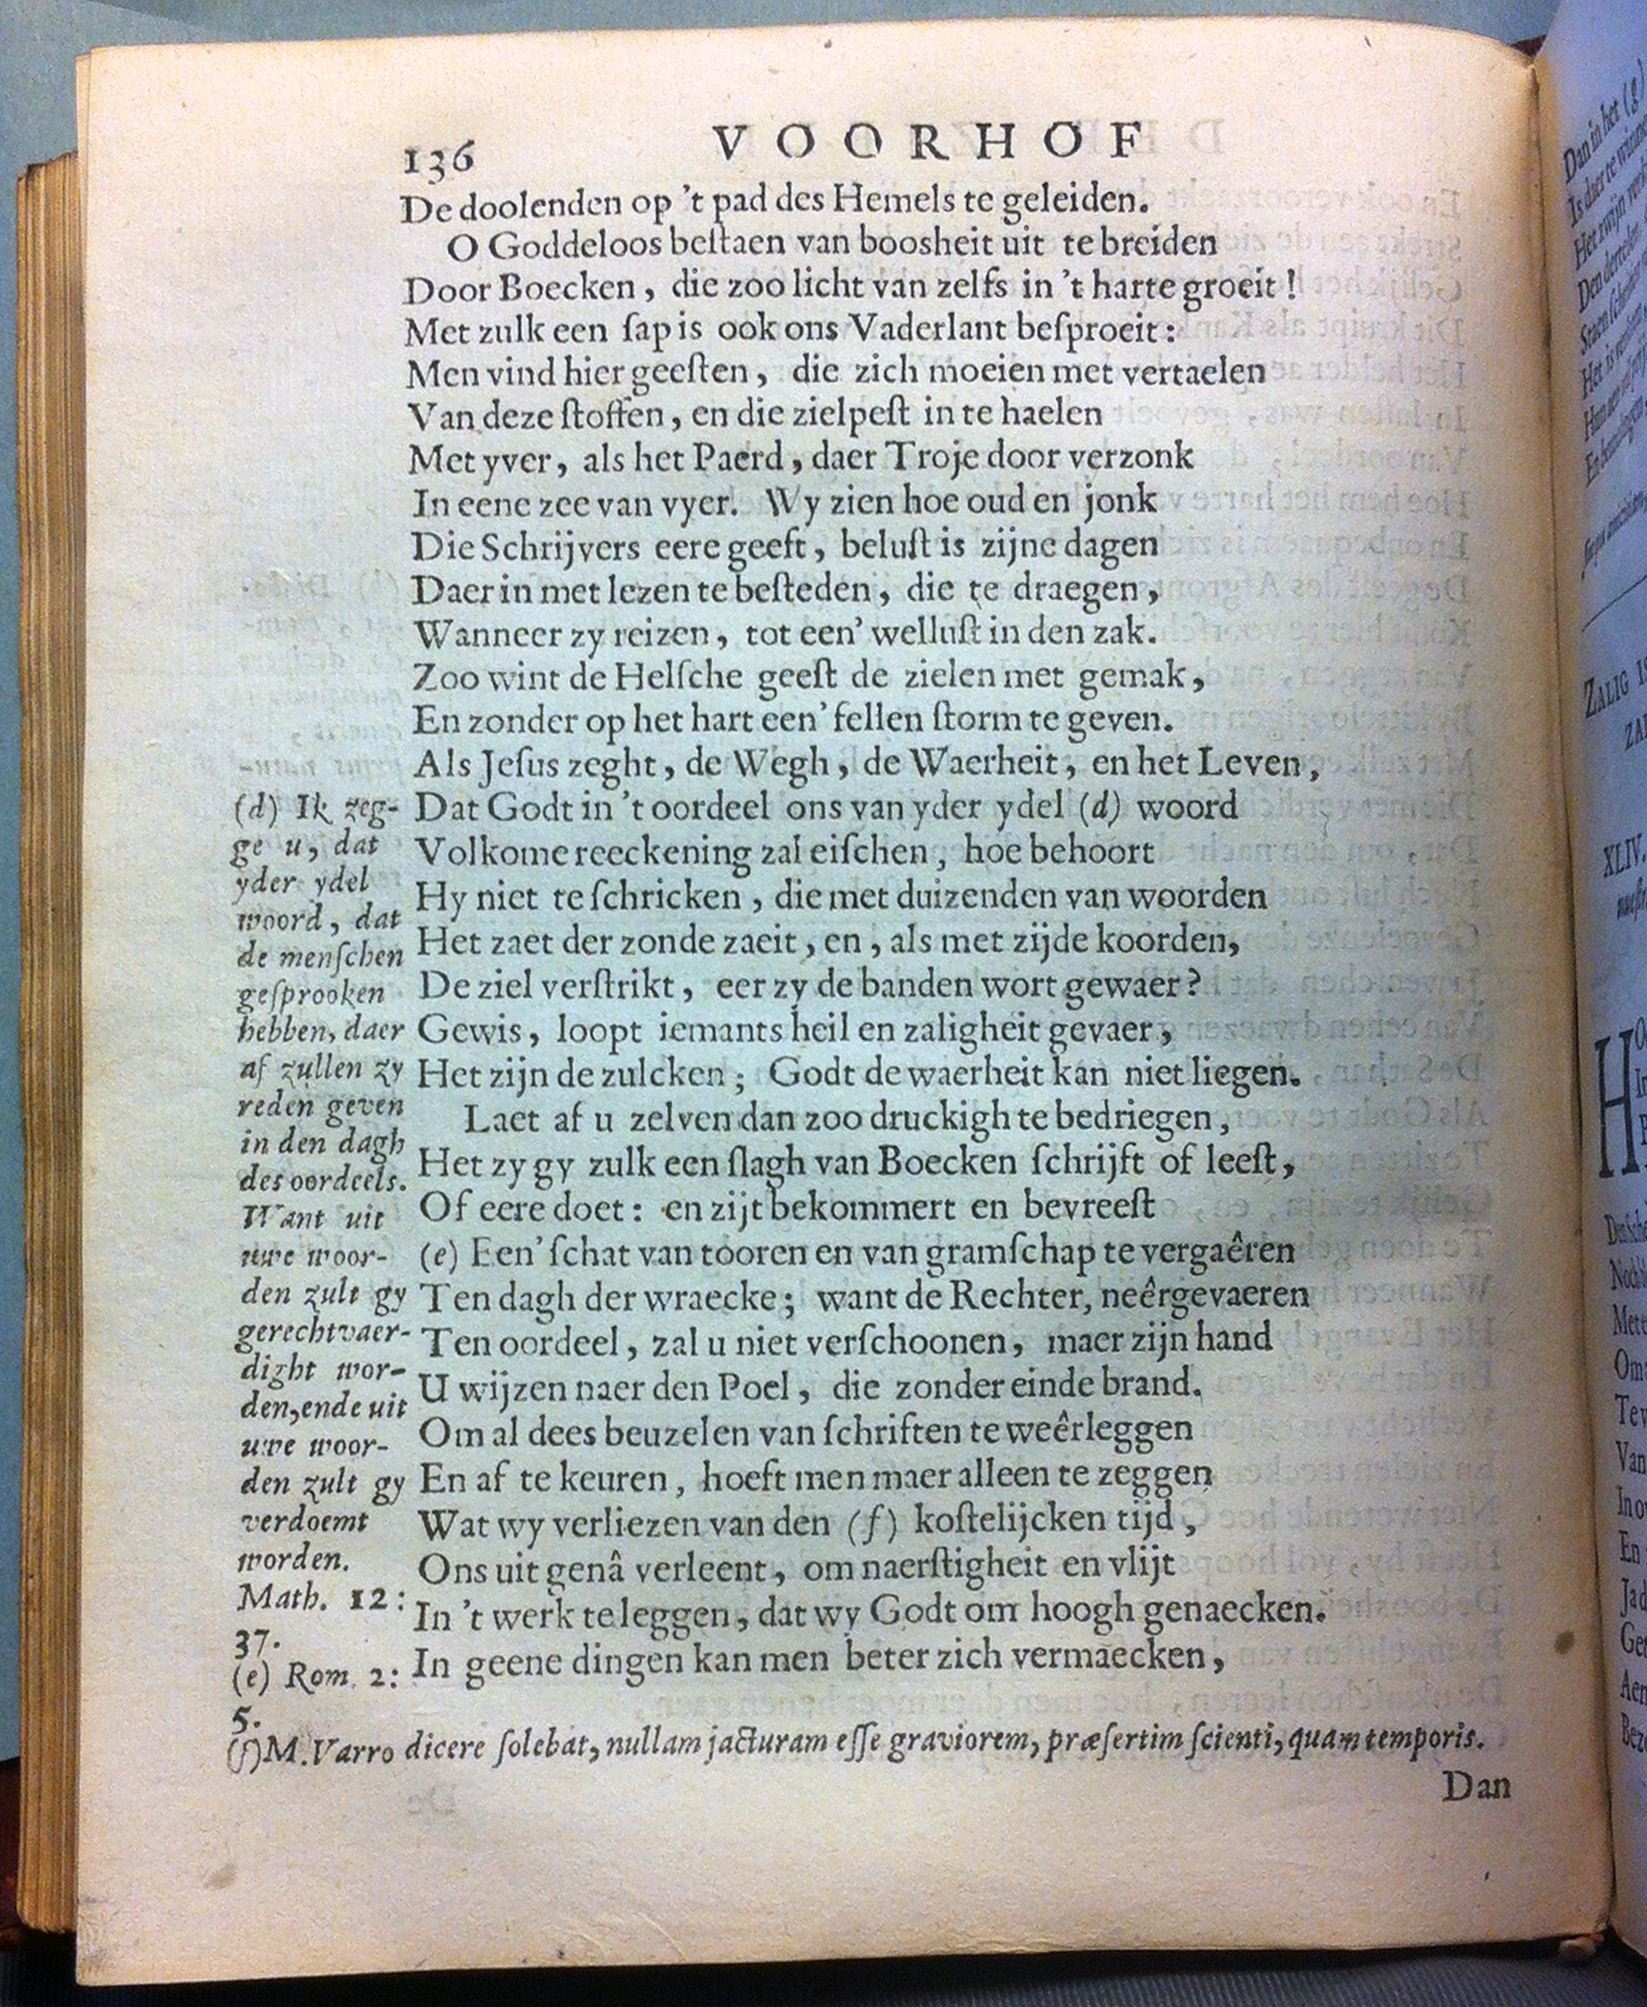 136
VOORHOF
De doolenden op 't pad des Hemels te geleiden.
O Goddeloos beſtaen van boosheit uit te breiden
Door Boecken, die zoo licht van zelfs in 't harte groeit!
Met zulk een ſap is ook ons Vaderlant beſproeit:
Men vind hier geeſten, die zich moeien met vertaelen
Van deze ſtoffen, en die zielpeſt in te haelen
Met yver, als het Paerd, daer Troje door verzonk
In eene zee van vyer. Wy zien hoe oud en jonk
Die Schrijvers eere geeft, beluſt is zijne dagen
Daer in met lezen te beſteden, die te draegen,
Wanneer zy reizen, tot een' welluſt in den zak.
Zoo wint de Helſche geeſt de zielen met gemak,
En zonder op het hart een' fellen ſtorm te geven.
Als Jeſus zeght, de Wegh, de Waerheit, en het Leven,
Dat Godt in 't oordeel ons van yder ydel (d) woord
Volkome reeckening zal eiſchen, hoe behoort
Hy niet te ſchricken, die met duizenden van woorden
Het zaet der zonde zaeit, en, als met zijde koorden,
De ziel verſtrikt, eer zy de banden wort gewaer?
Gewis, loopt iemants heil en zaligheit gevaer,
Het zijn de zulcken; Godt de waerheit kan niet liegen.
Laet af u zelven dan zoo druckigh te bedriegen,
Het zy gy zulk een ſlagh van Boecken ſchrijft of leeſt,
Of eere doet: en zijt bekommert en bevreeſt
(e) Een' ſchat van tooren en van gramſchap te vergaêren
Ten dagh der wraecke; want de Rechter, neêrgevaeren
Ten oordeel, zal u niet verſchoonen, maer zijn hand
U wijzen naer den Poel, die zonder einde brand.
Om al dees beuzelen van ſchriften te weêrleggen
En af te keuren, hoeft men maer alleen te zeggen
Wat wy verliezen van den (f) koſtelijcken tijd,
Ons uit genâ verleent, om naerſtigheit en vlijt
In 't werk te leggen, dat wy Godt om hoogh genaecken.
In geene dingen kan men beter zich vermaecken,
(d) Ik zeg-
ge u, dat
yder ydel
woord, dat
de menſchen
geſprooken
hebben, daer
af zullen zy
reden geven
in den dagh
des oordeels.
Want uit
uwe woor-
den zult gy
gerechtvaer-
dight wor-
den, ende uit
uwe woor-
den zult gy
verdoemt
worden.
Math. 12:
37.
(e) Rom. 2:
5.
(f) M. Varro dicere ſolebat, nullam jacturam eſſe graviorem, præſertim ſcienti, quam temporis.
Dan
Dan in het (g)
ZALIG
XLIV.